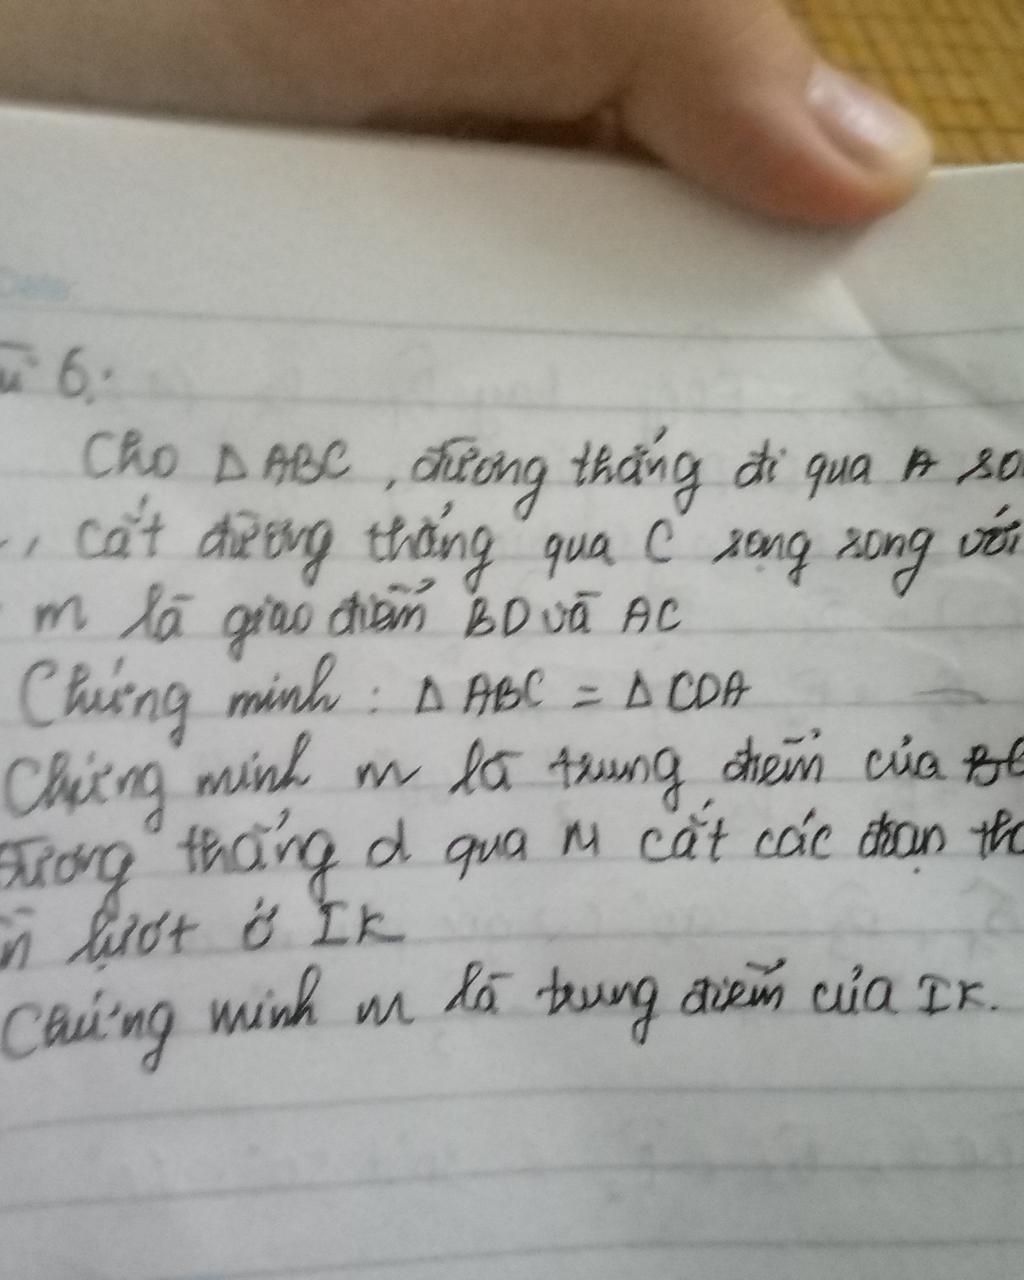 6:
Cho Δ ABC, đường thẳng đi qua A so
, cắt đường thẳng qua C song song với
m là giao điểm BD và AC
Chứng minh : Δ ABC = Δ CDA
Chứng minh m là trung điểm của
Đường thẳng d qua M cắt các đoạn thẳ
lượt ở IK
Chứng minh m là trung điểm của IK.